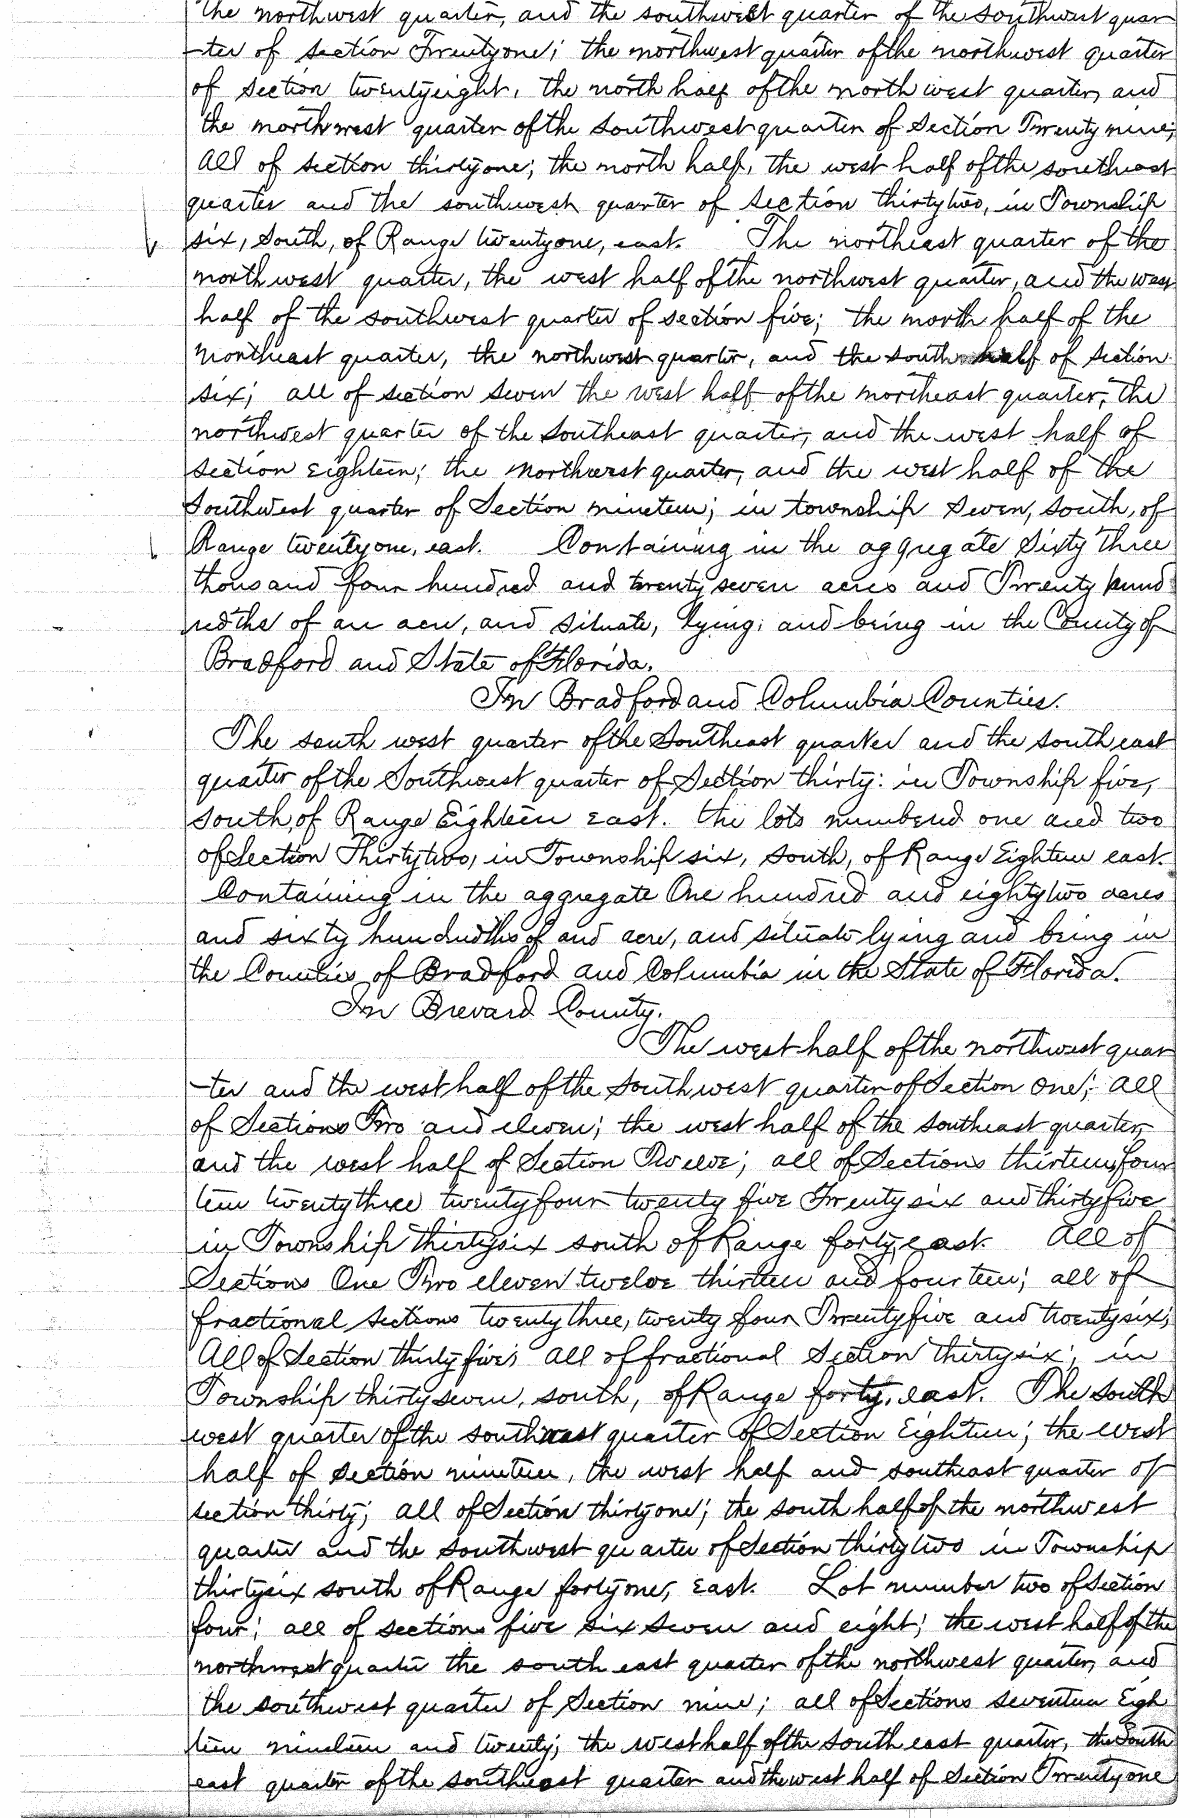 the northwest quarter, and the southwest quarter of the southwest quar
-ter of section Twentyone; the northwest quarter of the northwest quarter
of section twentyeight, the north half of the north west quarter, and
the northwest quarter of the southwest quarter of Section Twenty nine;
all of section thirtyone; the north half, the west half of the southeast
quarter and the southwest quarter of section thirtytwo, in Township
six, South, of Range twentyone, east. The northeast quarter of the
north west quarter, the west half of the northwest quarter, and the west
half of the southwest quarter of section five; the north half of the
northeast quarter, the northwest quarter, and the south half of section
six; all of section seven the west half of the northeast quarter, the
northwest quarter of the southeast quarter, and the west half of
section eighteen; the northwest quarter, and the west half of the
Southwest quarter of Section nineteen; in township seven, south, of
Range twentyone, east. Containing in the aggregate Sixty three
thousand four hundred and twenty seven acres and Twenty hund
redths of an acre, and situate, lying, and being in the County of
Bradford and State of Florida.
In Bradford and Columbia Counties.
The south west quarter of the Southeast quarter and the south east
quarter of the Southwest quarter of Section thirty: in Township five,
south, of Range Eighteen east. the lots numbered one and two
of Section Thirtytwo, in Township six, south, of Range Eighteen east.
Containing in the aggregate One hundred and eightytwo acres
and sixty hundredths of and acre, and situate lying and being in
the Counties of Bradford and Columbia in the State of Florida.
In Brevard County.
The west half of the northwest quar
-ter and the west half of the southwest quarter of Section one; all
of Sections Two and eleven; the west half of the southeast quarter,
and the west half of Section Twelve; all of Sections thirteen, four
teen twentythree twentyfour twenty five Twenty six and thirtyfive
in Township thirtysix south of Range forty, east. All of
Sections One Two eleven twelve thirteen and fourteen; all of
fractional sections twenty three, twenty four Twentyfive and twentysix;
All of Section thirtyfive; all of fractional Section thirtysix; in
Township thirtyseven, south, of Range forty, east. The south
west quarter of the southwest quarter of Section Eighteen; the west
half of section nineteen, the west half and southeast quarter of
section thirty; all of Section thirtyone; the south half of the northwest
quarter and the southwest quarter of Section thirtytwo in Township
thirtysix south of Range fortyone, east. Lot number two of Section
four; all of sections five six seven and eight; the west half of the
northwest quarter the south east quarter of the northwest quarter, and
the southwest quarter of Section nine; all of Sections seventeen Eigh
teen nineteen and twenty; the west half of the south east quarter, the South
east quarter of the southeast quarter and the west half of Section Twentyone